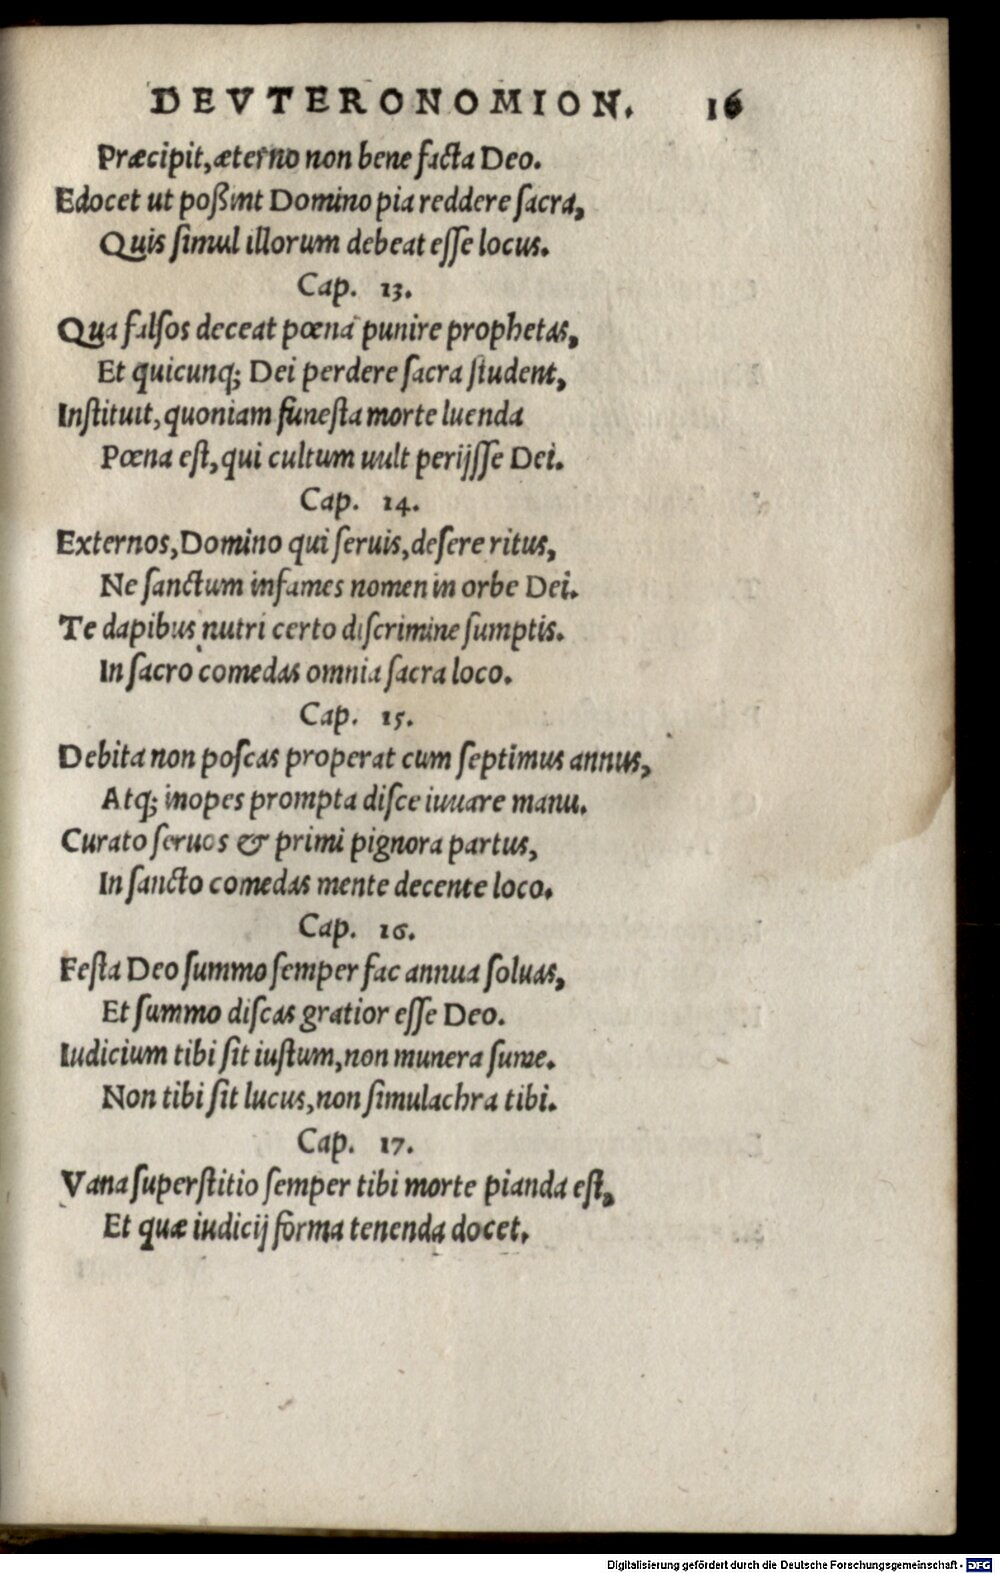 DEVTERONOMION. 16
Præcipit, æterno non bene facta Deo.
Edocet ut poßint Domino pia reddere ſacra,
Quis ſimul illorum debeat eſſe locus.
Cap. 13.
Qua falſos deceat pœna punire prophetas,
Et quicunq; Dei perdere ſacra ſtudent,
Inſtituit, quoniam funeſta morte luenda
Pœna eſt, qui cultum uult perijſſe Dei.
Cap. 14.
Externos, Domino qui ſeruis, deſere ritus,
Ne ſanctum infames nomen in orbe Dei.
Te dapibus nutri certo diſcrimine ſumptis.
In ſacro comedas omnia ſacra loco.
Cap. 15.
Debita non poſcas properat cum ſeptimus annus,
Atq; inopes prompta diſce iuuare manu.
Curato ſeruos & primi pignora partus,
In ſancto comedas mente decente loco.
Cap. 16.
Feſta Deo ſummo ſemper fac annua ſoluas,
Et ſummo diſcas gratior eſſe Deo.
Iudicium tibi ſit iuſtum, non munera ſume.
Non tibi ſit lucus, non ſimulachra tibi.
Cap. 17.
Vana ſuperſtitio ſemper tibi morte pianda eſt,
Et quæ iudicij forma tenenda docet.
Digitalisierung gefördert durch die Deutsche Forschungsgemeinschaft - DFG